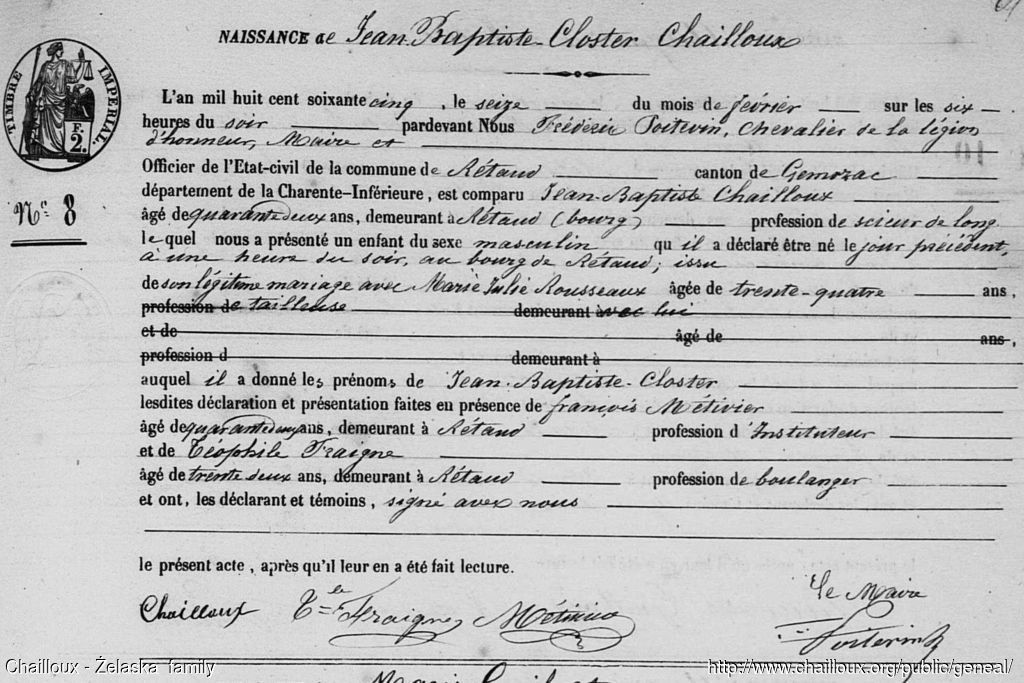 NAISSANCE de Jean-Baptiste-Closter Chailloux
TIMBRE IMPERIAL.
F.
2.
L'an mil huit cent soixante cinq, le seize du mois de février sur les six
heures du soir pardevant Nous Frédéric Poitevin, Chevalier de la légion
d'honneur, Maire et
Officier de l'Etat-civil de la commune de Rétaud canton de Gemozac
département de la Charente-Inférieure, est comparu Jean-Baptiste Chailloux
Nº 8
âgé de quarante deux ans, demeurant à Rétaud (bourg) profession de scieur de long
lequel nous a présenté un enfant du sexe masculin qu'il a déclaré être né le jour précédent,
à une heure du soir, au bourg de Rétaud; issu
de son légitime mariage avec Marie Julie Rousseaux âgée de trente-quatre ans,
profession de tailleuse demeurant avec lui
et de âgé de ans,
profession d demeurant à
auquel il a donné les prénoms de Jean-Baptiste-Closter
lesdites déclaration et présentation faites en présence de françois Métivier
âgé de quarante deux ans, demeurant à Rétaud profession d'Instituteur
et de Téophile Fraigne
âgé de trente deux ans, demeurant à Rétaud profession de boulanger
et ont, les déclarant et témoins, signé avex nous
le présent acte, après qu'il leur en a été fait lecture.
Le Maire
Chailloux Tle Fraigne Métivier
Poitevin
Chailloux - Żelaska family http://www.chailloux.org/public/geneal/